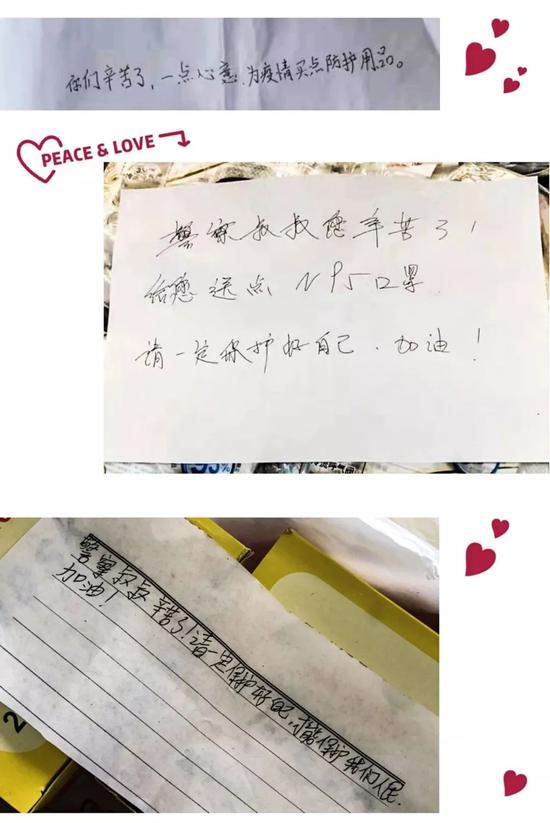 你们辛苦了,一点心意,为疫情买点防护用品。
PEACE & LOVE
警察叔叔您辛苦了!
给您送点 N95口罩
请一定保护好自己.加油!
警察叔叔辛苦了!请一定保护好自己,才能保护我们人民.
加油!